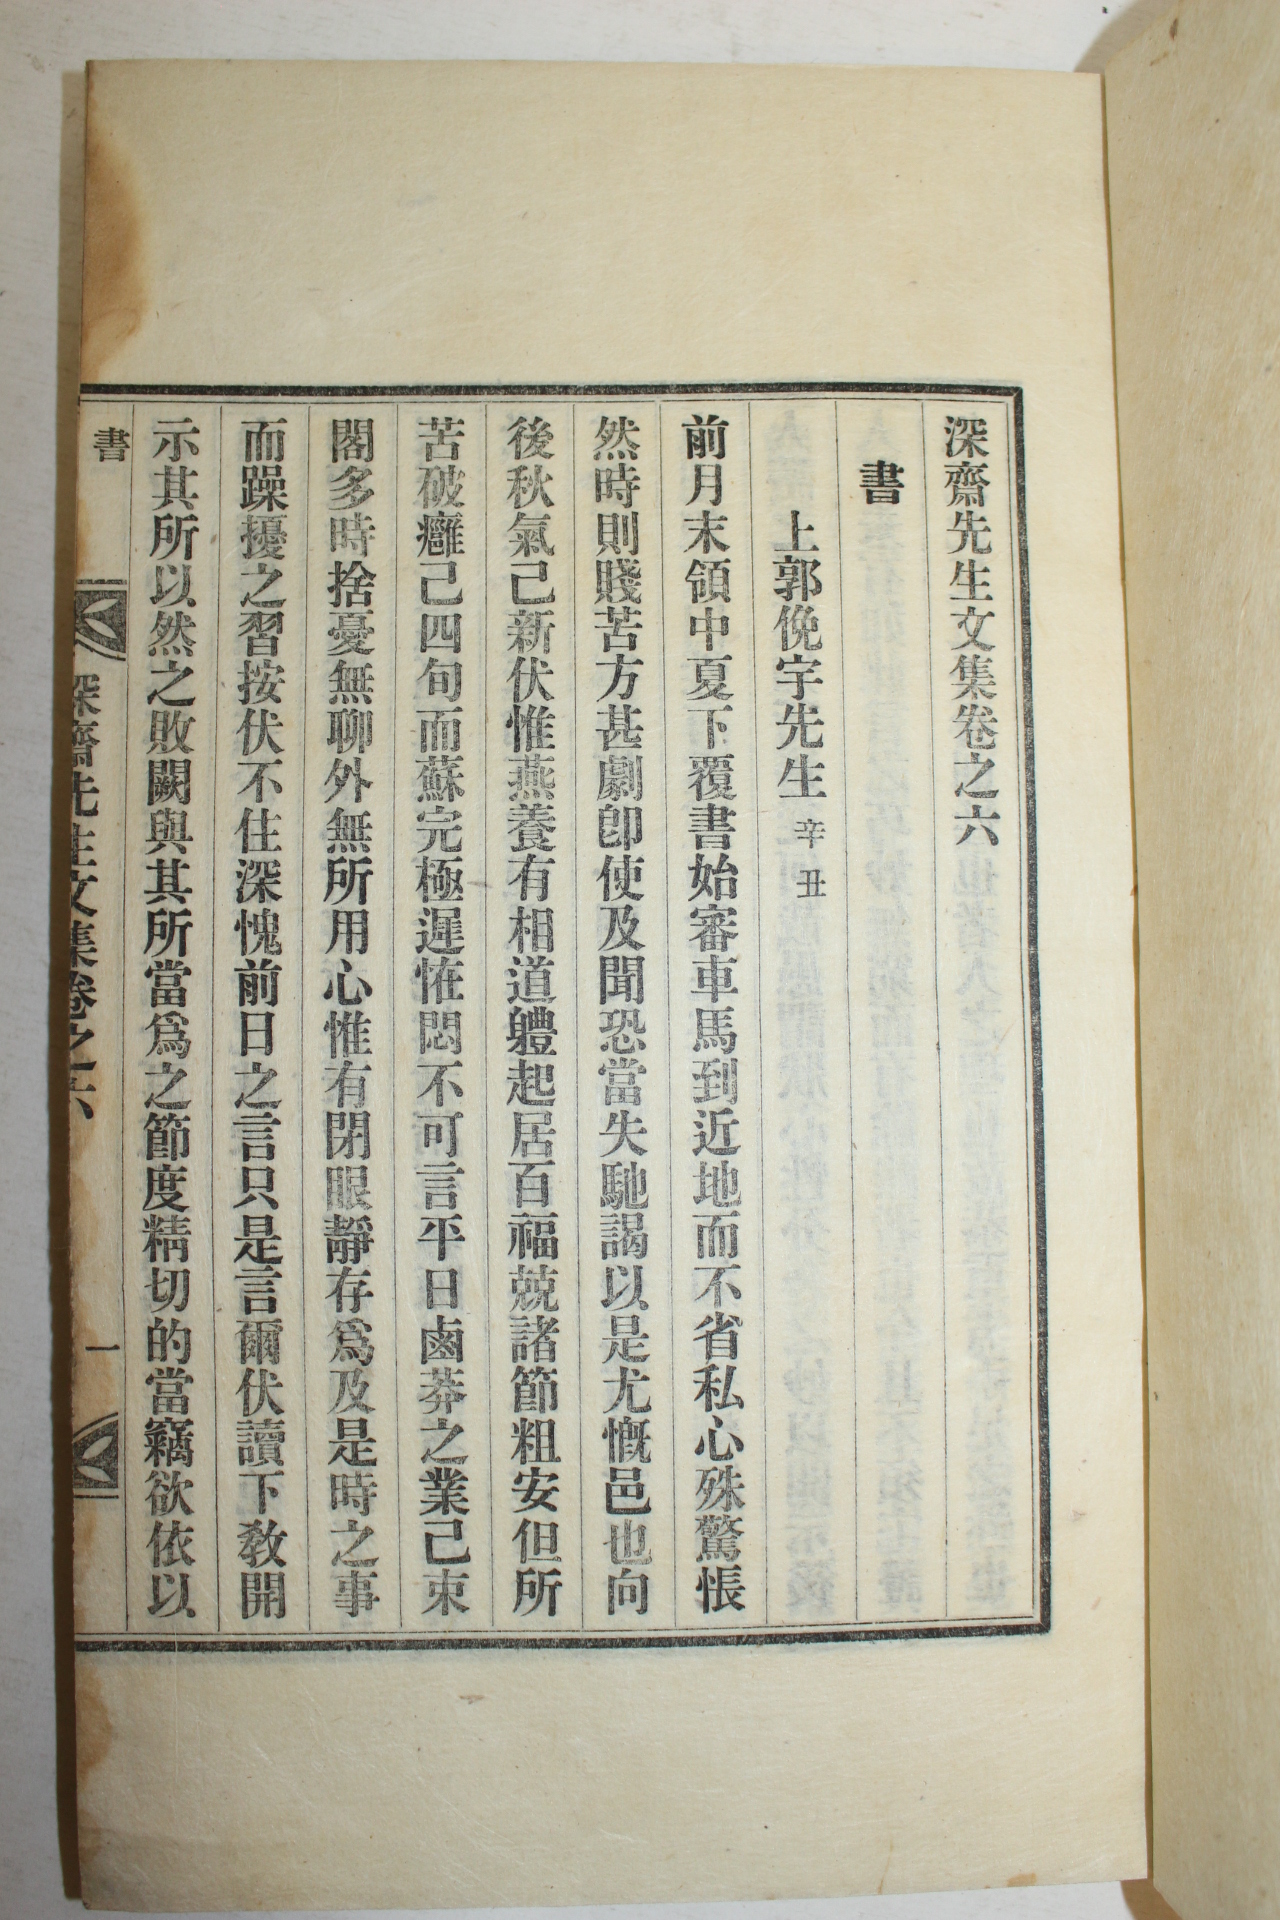 深齋先生文集卷之六
書
上郭俛宇先生 辛丑
前月末領中夏下覆書始審車馬到近地而不省私心殊驚悵
然時則賤苦方甚劇卽使及聞恐當失馳謁以是尤慨邑也向
後秋氣已新伏惟燕養有相道軆起居百福兢諸節粗安但所
苦破癰己四旬而蘇完極遲恠悶不可言平日鹵莽之業己束
閣多時捨憂無聊外無所用心惟有閉眼靜存爲及是時之事
而躁擾之習按伏不住深愧前日之言只是言爾伏讀下敎開
示其所以然之敗闕與其所當爲之節度精切的當竊欲依以
書 深齋先生文集卷之六 一